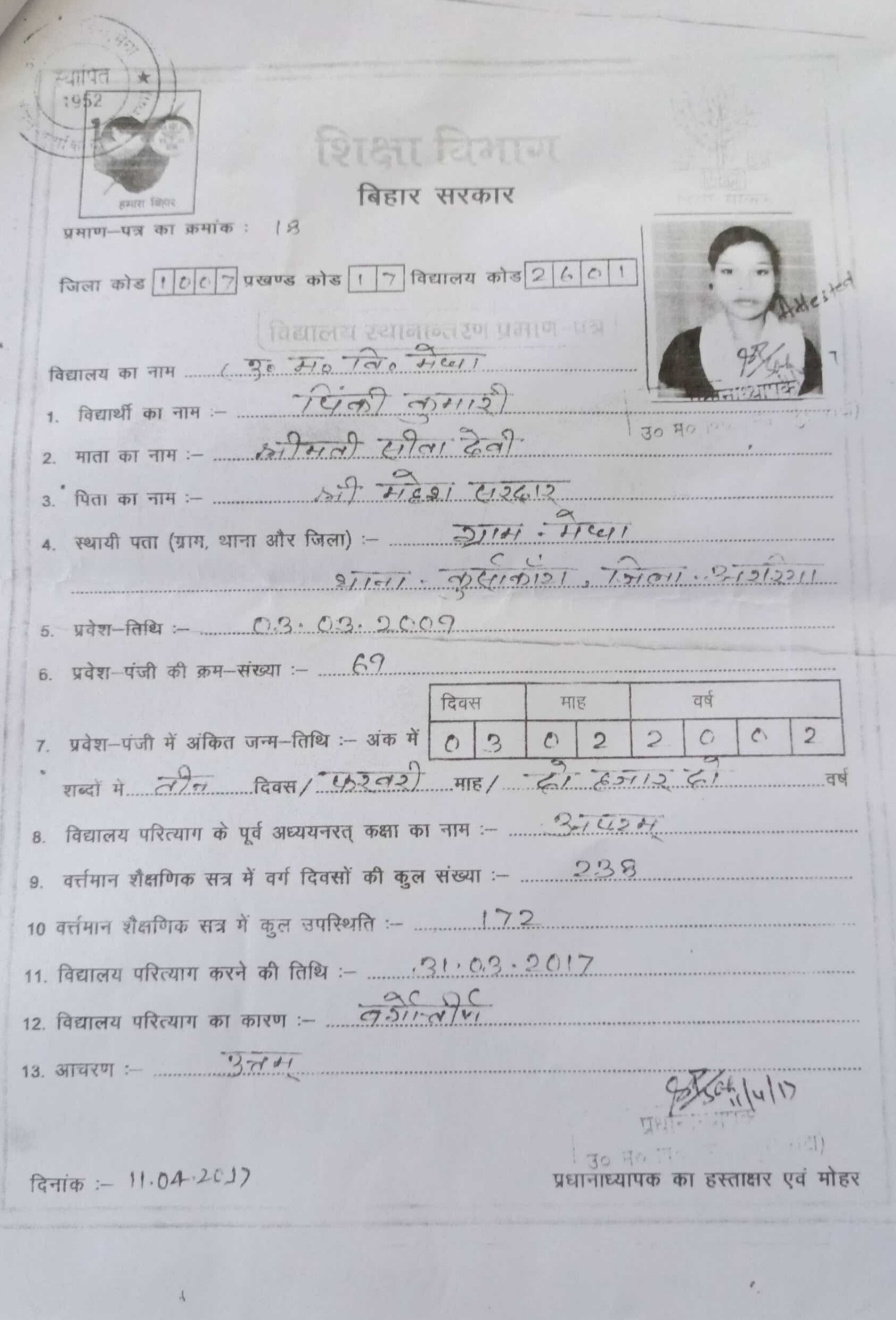 स्थापित ★
1952
हमारा बिहार
शिक्षा विभाग
बिहार सरकार
प्रमाण-पत्र का क्रमांक : 18
जिला कोड 1007 प्रखण्ड कोड 17 विद्यालय कोड 2601
Attested
विद्यालय स्थानान्तरण प्रमाण-पत्र
विद्यालय का नाम उ० म० वि० मेघा
1. विद्यार्थी का नाम :- पिंकी कुमारी
उ० म०
2. माता का नाम :- श्रीमती सीता देवी
3. पिता का नाम :- श्री महेश सरदार
4. स्थायी पता (ग्राम, थाना और जिला) :- ग्राम - मेघा
थाना - कुर्साकाँटा, जिला - अररिया
5. प्रवेश-तिथि :- 03.03.2009
6. प्रवेश-पंजी की क्रम-संख्या :- 69
दिवस माह वर्ष
7. प्रवेश-पंजी में अंकित जन्म-तिथि :- अंक में 0 3 0 2 2 0 0 2
शब्दों मे तीन दिवस/ फरवरी माह/ दो हजार दो वर्ष
8. विद्यालय परित्याग के पूर्व अध्ययनरत् कक्षा का नाम :- अष्टम्
9. वर्त्तमान शैक्षणिक सत्र में वर्ग दिवसों की कुल संख्या :- 238
10 वर्त्तमान शैक्षणिक सत्र में कुल उपस्थिति :- 172
11. विद्यालय परित्याग करने की तिथि :- 31.03.2017
12. विद्यालय परित्याग का कारण :- वर्गोत्तीर्ण
13. आचरण :- उत्तम्
11/4/17
उ० म०
दिनांक :- 11.04.2017
प्रधानाध्यापक का हस्ताक्षर एवं मोहर